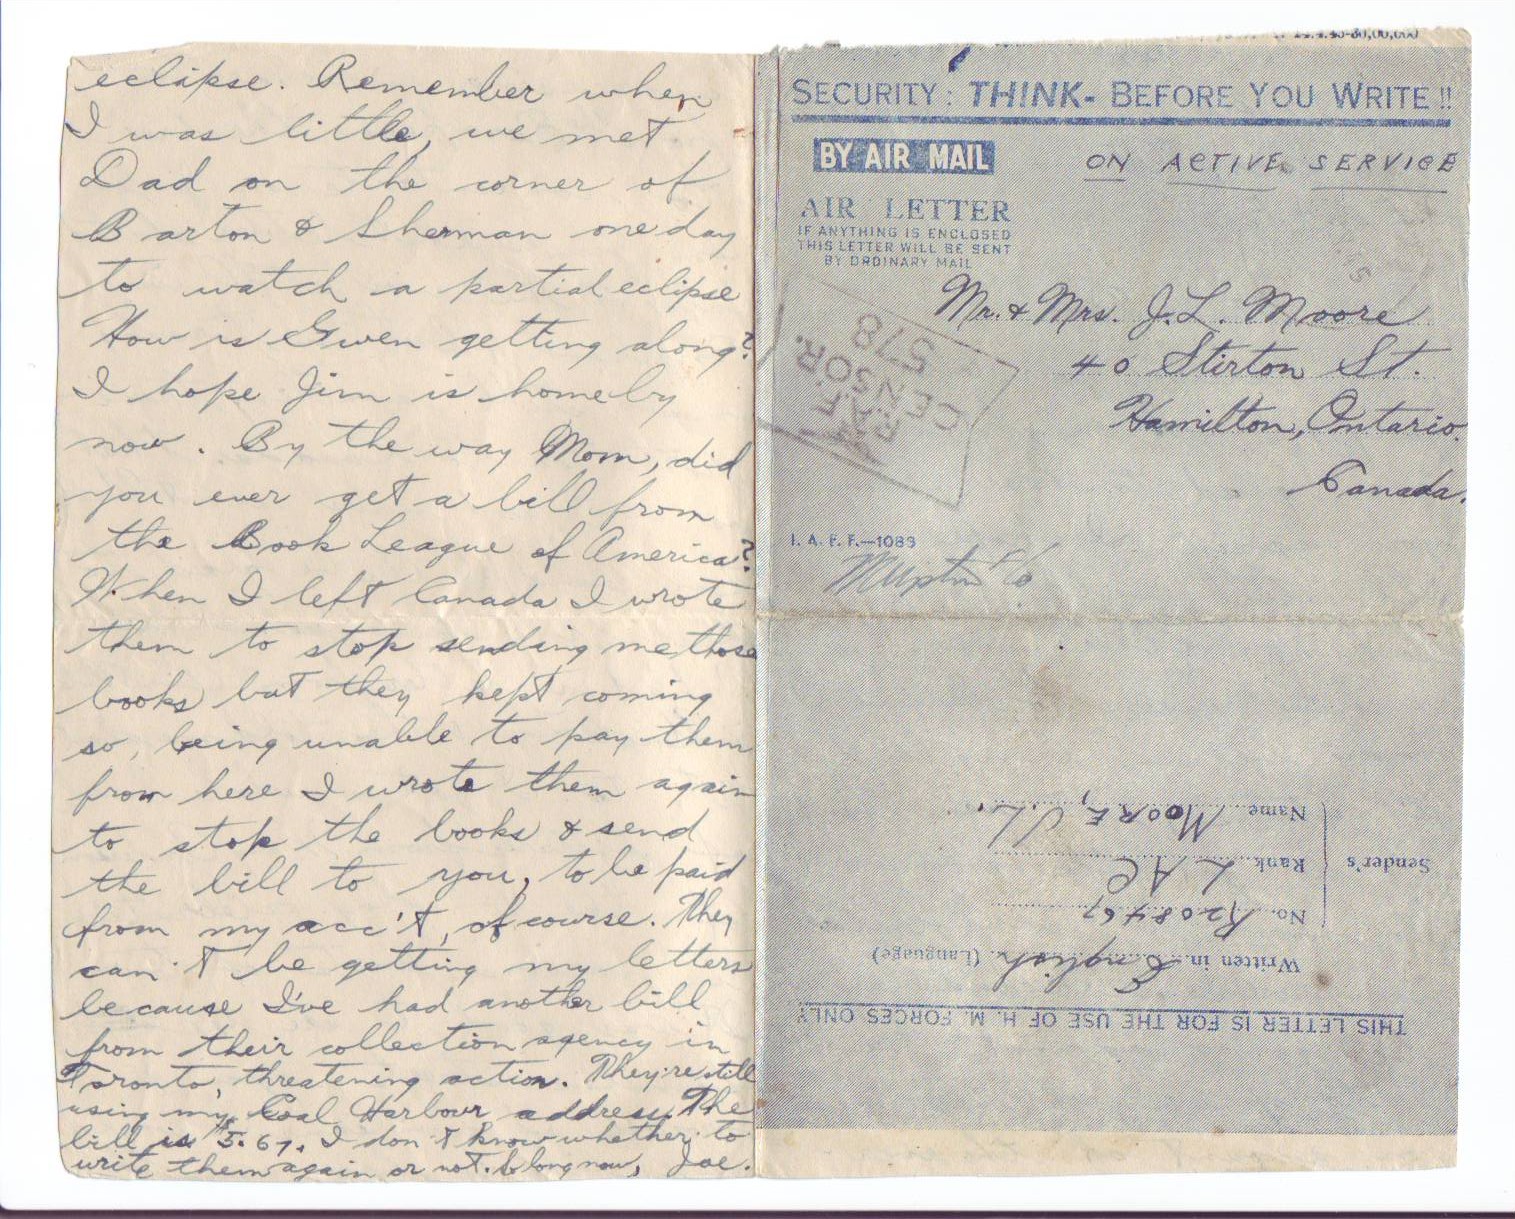 eclipse. Remember when
I was little, we met
Dad on the corner of
Barton & Sherman one day
to watch a partial eclipse
How is Gwen getting along?
I hope Jim is home by
now. By the way Mom, did
you ever get a bill from
the Book League of America?
When I left Canada I wrote
them to stop sending me those
books but they kept coming
so, being unable to pay them
from here I wrote them again
to stop the books & send
the bill to you, to be paid
from my acc't, of course. They
can't be getting my letters
because I've had another bill
from their collection agency in
Toronto, threatening action. They're still
using my Coal Harbour address. The
bill is $5.67. I don't know whether to
write them again or not. So long now, Joe.
14.4.45-30,00,000
SECURITY: THINK- BEFORE YOU WRITE!!
BY AIR MAIL
ON ACTIVE SERVICE
AIR LETTER
IF ANYTHING IS ENCLOSED
THIS LETTER WILL BE SENT
BY ORDINARY MAIL
Mr. & Mrs. J. L. Moore
40 Stirton St.
Hamilton, Ontario.
Canada.
R.A.F.
CENSOR.
578
I. A. F. F.—1089
THIS LETTER IS FOR THE USE OF H. M. FORCES ONLY
Written in English (Language)
Sender's
No. R208467
Rank LAC
Name MOORE, J.L.